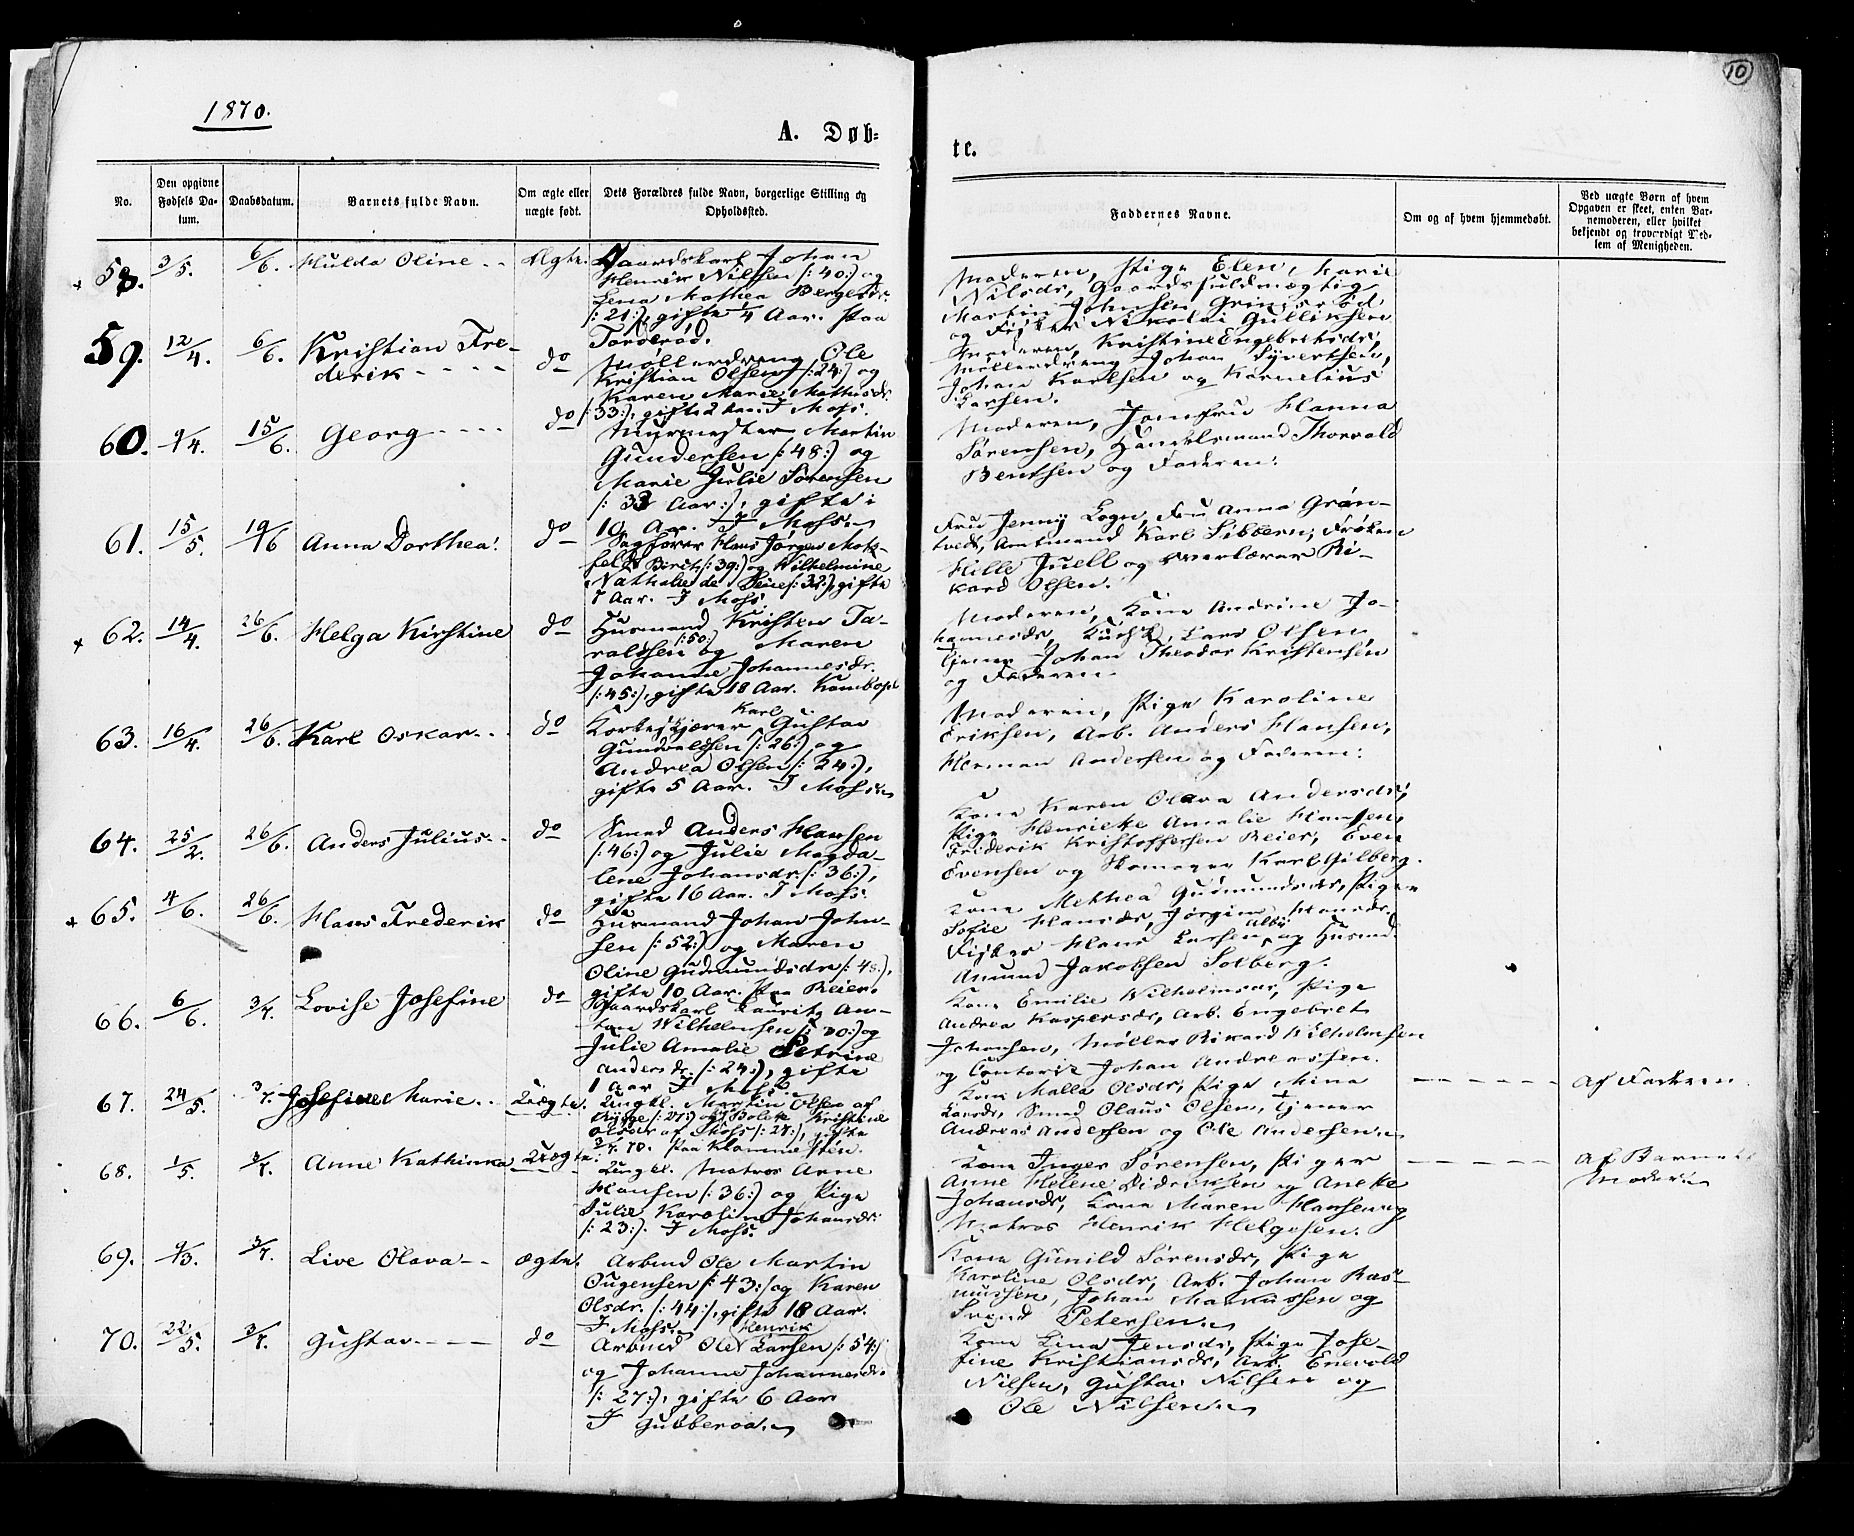 10
1870.
A. Døb-
te.
No.
Den opgivne Fødsels Datum.
Daabsdatum.
Barnets fulde Navn.
Om ægte eller uægte født.
Dets Forældres fulde Navn, borgerlige Stilling og Opholdssted.
Faddernes Navne.
Om og af hvem hjemmedøbt.
Ved uægte Børn af hvem Opgaven er skeet, enten Barnemoderen, eller hvilket bekjendt og troværdigt Medlem af Menigheden.
58. 3/5. 6/6. Hulda Oline Ægte. Gaardskarl Johan
Henrik Nilssen (:40:) og
Lena Mathea
(:21:), gifte 1/4 Aar. Paa
Torderød.
Moderen, Pige Elen Marie
Nilsdr, Gaardsfuldmægtig
Martin Johnsen Grimsrød
og Fisker Nikolai Gulliksen
59. 12/4. 6/6. Kristian Fre-
derik do Møllerdreng Ole
Kristian Olsen (:24:) og
Karen Marie Mathisdr.
(:33:), gifte 2 Aar. I Moss.
Moderen, Kristine Engebretsdr,
Møllerdreng Johan Syvertsen,
Johan Karlsen og Kornelius
Larsen.
60. 9/4. 15/6. Georg do Murmester Martin
Gundersen (:48:) og
Marie Julie Sørensen
(:33 Aar:), gifte i
10 Aar. I Moss.
Moderen, Jomfru Hanna
Sørensen, Handelsmand Thorvald
Bentsen og Faderen.
61. 15/5. 19/6 Anna Dorthea. do Sagfører Hans Jørgen
Birch (:39:) og Wilhelmine
Nathalie de Seue (:32:), gifte
7 Aar. I Moss.
Fru Jenny Logn, Fru Anna Grøn-
tvedt, Amtmand Karl Sibbern, Frøken
Hille Juell og Overlærer Ri-
kard Olsen.
62. 14/4. 26/6. Helga Kirstine do Husmand Kristen Ta-
raldsen (:50:) og Maren
Johanne Johannesdr.
(:45:), gifte 18 Aar. Kambo
Moderen, Kone Andrine Jo-
hannesdr, Lars Olsen,
Tjener Johan Theodor Kristensen
og Faderen.
63. 16/4. 26/6. Karl Oskar do Korkeskjærer Karl Gustav
Gundvaldsen (:26:) og
Andrea Olsen (:24:),
gifte 5 Aar. I Moss.
Moderen, Pige Karoline
Eriksen, Arb. Anders Hansen,
Herman Andersen og Faderen.
64. 25/2. 26/6. Anders Julius do Smed Anders Hansen
(:46:) og Julie Magda-
lene Johansdr. (:36:),
gifte 16 Aar. I Moss.
Kone Karen Olava Andersdr,
Pige Henrieke Amalie Hansen,
Friderik Kristoffersen Reier, Even
Evensen og Skomager Karl Gilberg.
65. 4/6. 26/6. Hans Frederik do Husmand Johan John-
sen (:52:) og Maren
Oline Gudmundsdr (:48:),
gifte 10 Aar. Paa Reier.
Kone Mathea Gudmundsdr, Piger
Sofie Hansdr, Jørgine Hansdr,
Fisker Hans Larsen Alby og Husmd.
Amund Jakobsen Solberg.
66. 6/6. 3/7. Lovise Josefine do Gaardskarl Laurits An-
ton Wilhelmsen (:20:) og
Julie Amalie Petrine
Andersdr. (:24:), gifte
1 Aar I Moss.
Kone Emilie Wilhelmsen, Pige
Andrea Kaspersdr, Arb. Engebret
Johansen, Møller Rikard Wilhelmsen
og Contorist Johan Andreassen.
67. 24/5. 3/7. Josefine Marie Uægte. Ungkl. Martin Olsen af
Rygge (:27:) og Bolette Kristine
Olsdr af Moss (:27:), gifte
3/7 70. Paa Klommesten.
Kone Malla Olsdr, Pige Mina
Larsdr, Smed Olaus Olsen, Tjener
Andreas Andersen og Ole Andersen.
Af Faderen
68. 1/5. 3/7. Anne Kathinka Uægte. Ungkl. Matros Arne
Hansen (:36:) og Pige
Julie Karoline Johansdr.
(:23:). I Moss.
Kone Inger Sørensen, Piger
Anne Helene Didriksen og Aneke
Johansdr, Kone Maren Hansen og
Matros Henrik Helgesen.
Af Barnets
Moder
69. 9/3. 3/7. Live Olava ægte. Arbmd Ole Martin
Ougensen (:43:) og Karen
Olsdr. (:44:), gifte 18 Aar.
I Moss.
Kone Gunild Sørensdr, Pige
Karoline Olsdr, Arb. Johan Ras-
mussen, Johan Markussen og
Svend Petersen.
70. 22/5. 3/7. Gustav do Arbmd Ole Henrik Larsen (:54:)
og Johanne Johannesdr.
(:27:), gifte 6 Aar
I Gubberoa.
Kone Lina Jensdr, Pige Jose-
fine Kristiansdr, Arb. Enevold
Nilsen, Gustav Nilsen og
Ole Nilsen.